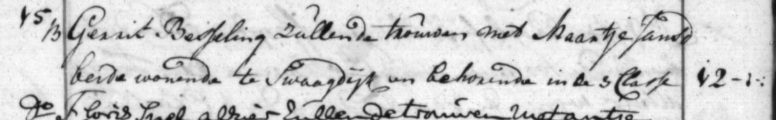 15/13 Gerrit Besseling zullende trouwen met Maartje Jansd
beyde wonende te Swaagdijk en behorende in de 3 Classe 12-:-:
Do Floris alhier zullende trouwen met antje